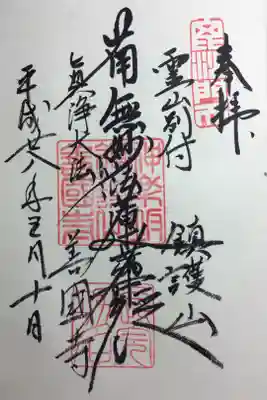 奉拝
霊山別付
鎮護山
南無妙法蓮華経
真浄大法
善國寺
平成廿八年五月十日